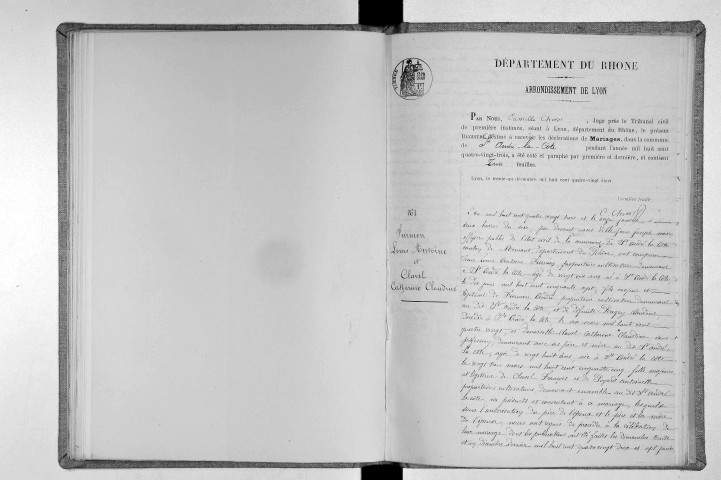 DÉPARTEMENT DU RHONE
ARRONDISSEMENT DE LYON
PAR NOUS, Camille , Juge près le Tribunal civil
de première instance, séant à Lyon, département du Rhône, le présent
REGISTRE destiné à recevoir les déclarations de Mariages, dans la commune
de St André-la-Côte pendant l'année mil huit cent
quatre-vingt-trois, a été coté et paraphé par première et dernière, et contient
feuilles.
Lyon, le trente-un décembre mil huit cent quatre-vingt-deux.
Première feuille
N° 1
Antoine
et
Clavel
Catherine Claudine
L'an mil huit cent quatre vingt trois et le onze janvier à
deux heures du soir, par devant nous
officier public de l'état civil de la commune de St André la Côte
canton de Mornant, département du Rhône, ont comparu
Antoine propriétaire cultivateur demeurant
à St André la Côte, âgé de vingt six ans né à St André la Côte
le mil huit cent cinquante sept, fils majeur et
légitime de propriétaire cultivateur demeurant
au dit St André la Côte, et de défunte
décédée à St André la Côte le mars mil huit cent
quatre vingt, et demoiselle Clavel Catherine Claudine sans
profession, demeurant avec ses père et mère au dit St André
la Côte, âgée de vingt huit ans, née à St André la Côte
le vingt mars mil huit cent cinquante cinq, fille majeure
et légitime de Clavel François et de Antoinette
propriétaires cultivateurs demeurant ensemble au dit St André
la Côte, ici présents et consentant à ce mariage, lesquels
sous l'autorisation du père de l'époux et le père et la mère
de l'épouse, nous ont requis de procéder à la célébration de
leur mariage dont les publications ont été faites les dimanches trente
et un décembre dernier mil huit cent quatre vingt deux et sept janvier